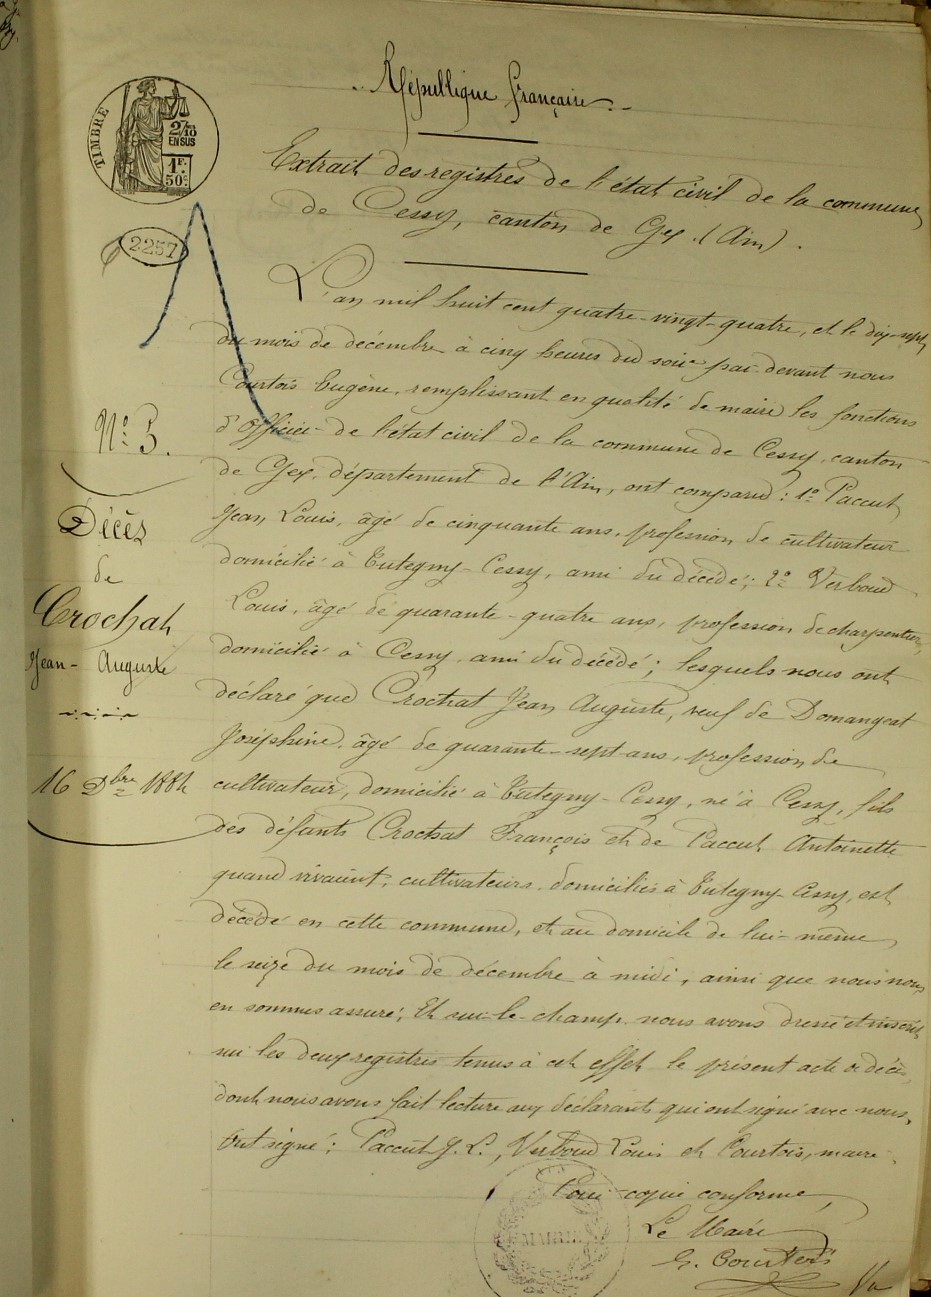 République française.
TIMBRE
2/10
EN SUS
1F.
50c.
Extrait des registres de l'état civil de la commune
de Cessy, canton de Gex. (Ain).
2257
L'an mil huit cent quatre-vingt-quatre, et le dix-sept
du mois de décembre à cinq heures du soir par devant nous
Courtois Eugène, remplissant en qualité de maire les fonctions
d'officier de l'état civil de la commune de Cessy, canton
de Gex, département de l'Ain, ont comparu : 1o Paccut
Jean Louis, âgé de cinquante ans, profession de cultivateur
domicilié à Tutegny-Cessy, ami du décédé ; 2o Verboud
Louis, âgé de quarante-quatre ans, profession de charpentier,
domicilié à Cessy, ami du décédé ; lesquels nous ont
déclaré que Crochat Jean Auguste, veuf de Domangeat
Joséphine, âgé de quarante-sept ans, profession de
cultivateur, domicilié à Tutegny-Cessy, né à Cessy, fils
des défunts Crochat François et de Paccut Antoinette
quand vivaient, cultivateurs, domiciliés à Tutegny-Cessy, est
décédé en cette commune, et au domicile de lui-même
le seize du mois de décembre à midi, ainsi que nous nous
en sommes assuré ; Et sur-le-champ nous avons dressé et inscrit
sur les deux registres tenus à cet effet le présent acte de décès,
dont nous avons fait lecture aux déclarants qui ont signé avec nous.
Ont signé : Paccut J. L., Verboud Louis et Courtois, maire.
No 5.
Décès
de
Crochat
Jean-Auguste
16 Dbre 1884
Pour copie conforme,
Le Maire
E. Courtois
MAIRIE
Vu